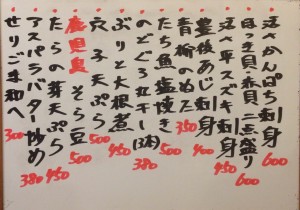 活〆かんぱち刺身 600
ほっき貝・赤貝二点盛り 600
活〆平スズキ刺身 450
豊後あじ刺身 400
青柳のぬた 350
たち魚塩焼き 500
のどぐろ丸干し(3本) 380
ぶりと大根煮 450
穴子天ぷら 500
鹿児島そら豆 500
たらの芽天ぷら 450
アスパラバター炒め 380
せりごま和へ 300